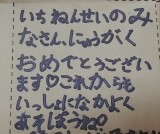 いちねんせいのみ
なさん、にゅうがく
おめでとうござい
ます♡これからも
いっしょになかよく
あそぼうね♡